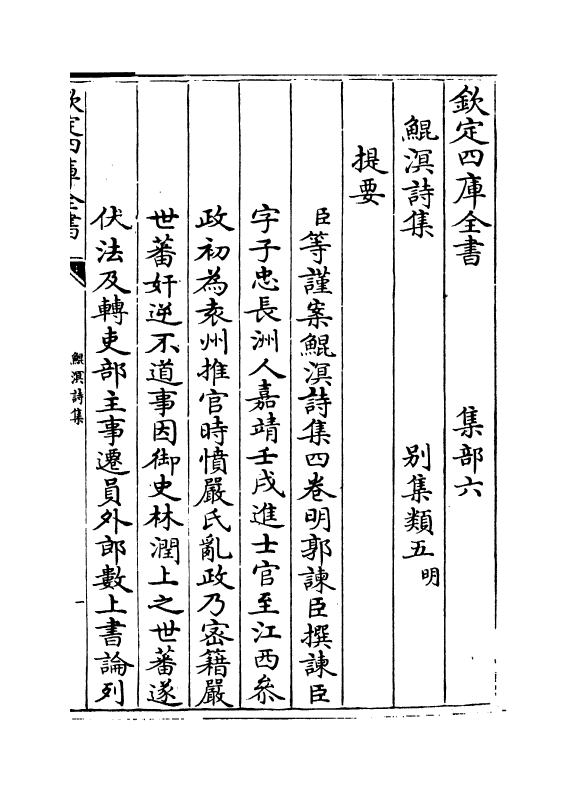 欽定四庫全書　集部六
鯤溟詩集　別集類五明
提要
臣等謹案鯤溟詩集四卷明郭諫臣撰諫臣
字子忠長洲人嘉靖壬戌進士官至江西叅
政初為袁州推官時憤嚴氏亂政乃密籍嚴
世蕃奸逆不道事因御史林潤上之世蕃遂
伏法及轉吏部主事遷員外郎數上書論列
欽定四庫全書
鯤溟詩集
一